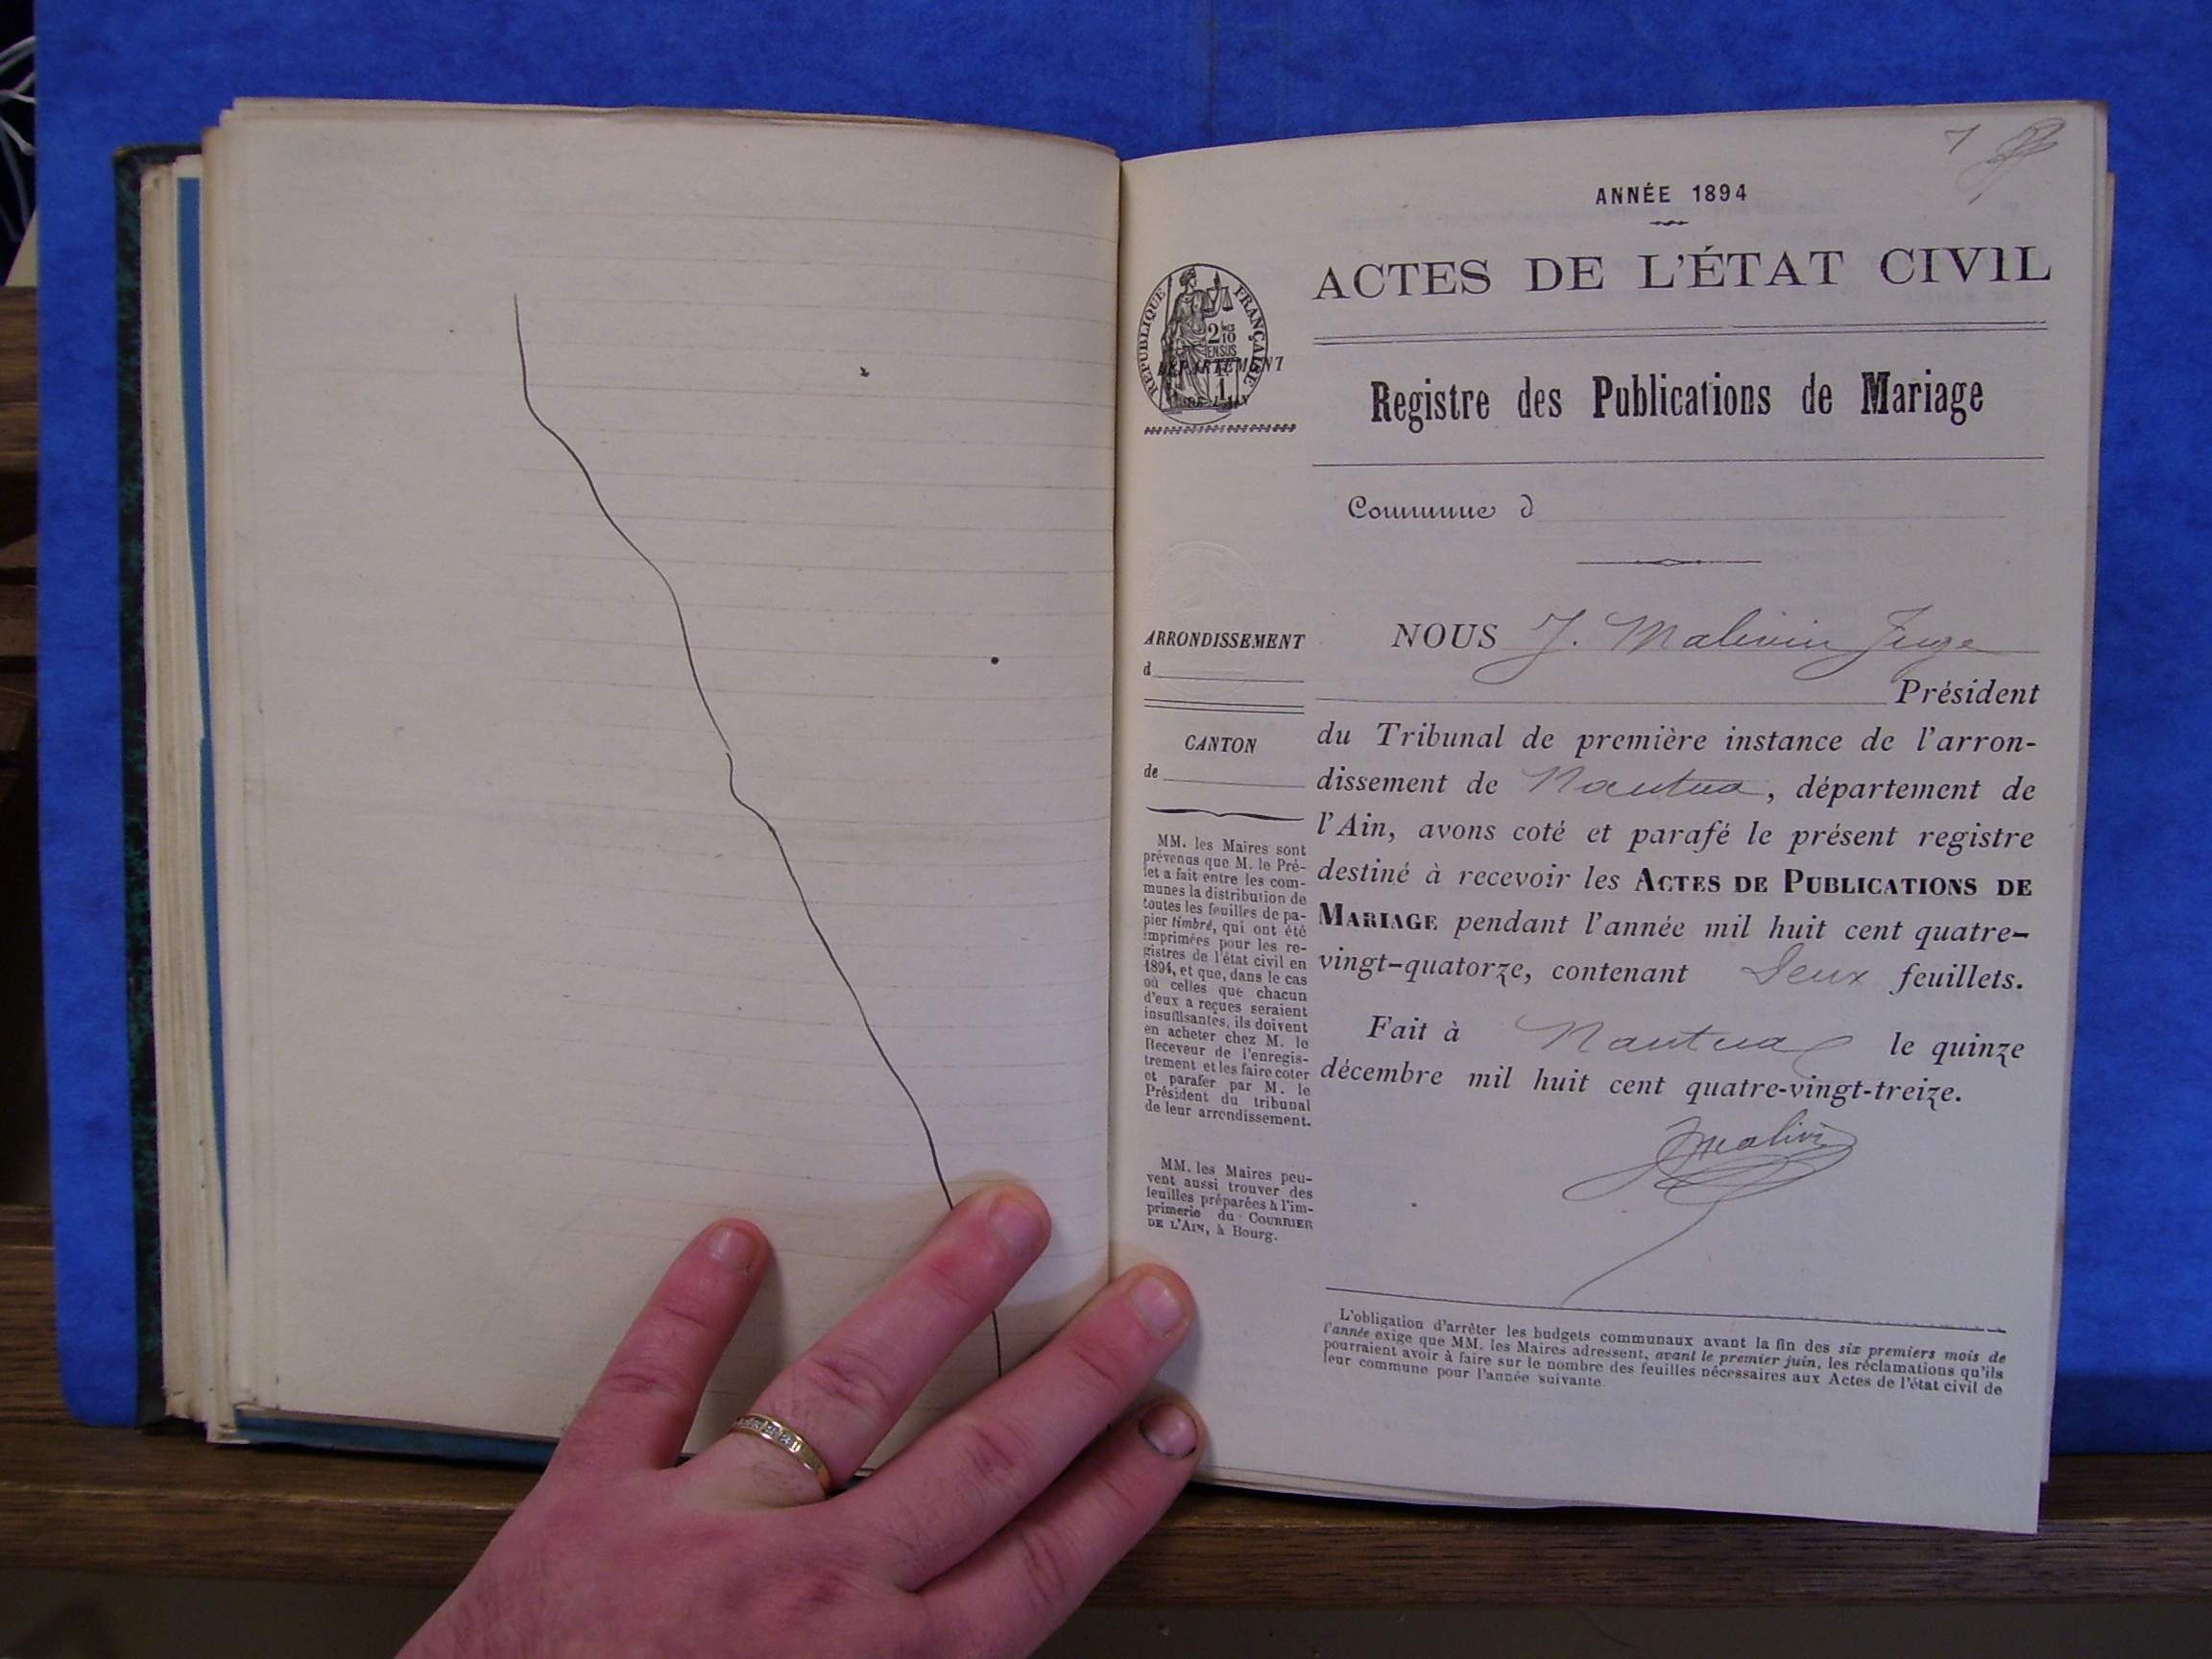 1
ANNÉE 1894
ACTES DE L'ÉTAT CIVIL
RÉPUBLIQUE FRANÇAISE
2 10
EN SUS
DÉPARTEMENT
DE L'AIN
Registre des Publications de Mariage
Commune d
NOUS J. Malivin Juge
Président
du Tribunal de première instance de l'arron-
dissement de Nantua, département de
l'Ain, avons coté et parafé le présent registre
destiné à recevoir les ACTES DE PUBLICATIONS DE
MARIAGE pendant l'année mil huit cent quatre-
vingt-quatorze, contenant Deux feuillets.
Fait à Nantua le quinze
décembre mil huit cent quatre-vingt-treize.
JMalivin
ARRONDISSEMENT
d
CANTON
de
MM. les Maires sont
prévenus que M. le Pré-
fet a fait entre les com-
munes la distribution de
toutes les feuilles de pa-
pier timbré, qui ont été
imprimées pour les re-
gistres de l'état civil en
1894, et que, dans le cas
où celles que chacun
d'eux a reçues seraient
insuffisantes, ils doivent
en acheter chez M. le
Receveur de l'enregis-
trement et les faire coter
et parafer par M. le
Président du tribunal
de leur arrondissement.
MM. les Maires peu-
vent aussi trouver des
feuilles préparées à l'im-
primerie du COURRIER
DE L'AIN, à Bourg.
L'obligation d'arrêter les budgets communaux avant la fin des six premiers mois de
l'année exige que MM. les Maires adressent, avant le premier juin, les réclamations qu'ils
pourraient avoir à faire sur le nombre des feuilles nécessaires aux Actes de l'état civil de
leur commune pour l'année suivante.